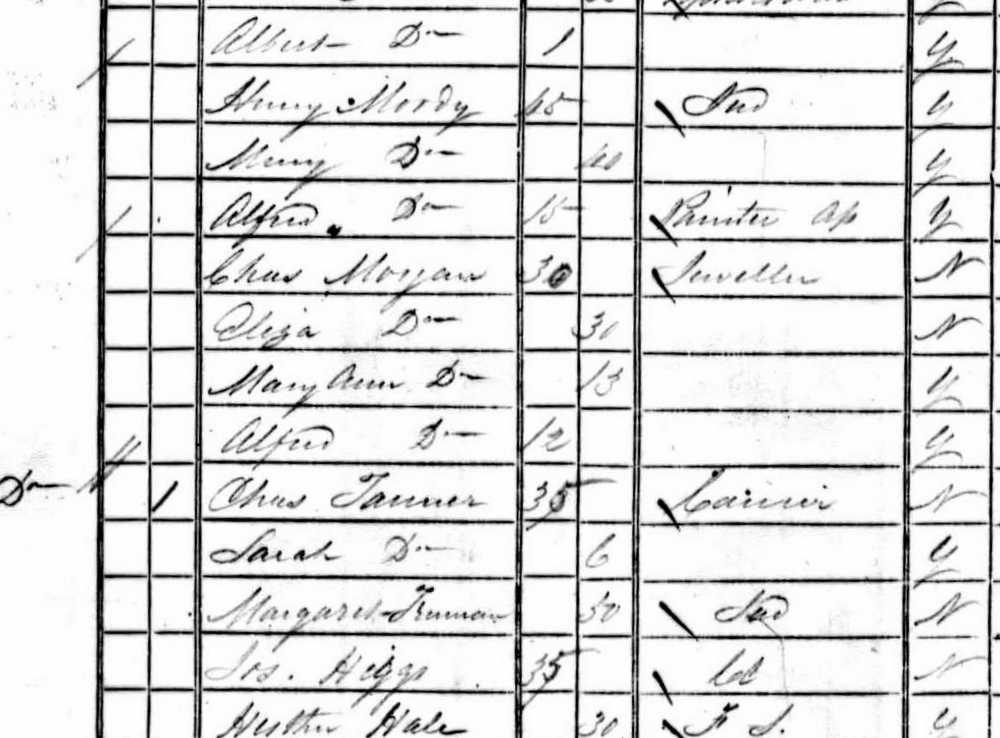 Albert Do 1 Y
Henry Moody 45 Ind Y
Mary Do 40 Y
Alfred Do 15 Painter Ap Y
Chas Morgan 30 Jeweller N
Eliza Do 30 N
Mary Ann Do 13 Y
Alfred Do 12 Y
Do 1 Chas Tanner 35 Carrier N
Sarah Do 6 Y
Margaret Truman 30 Ind N
Jos. Higgs 35 N
Hesther Hale 30 F. S. Y